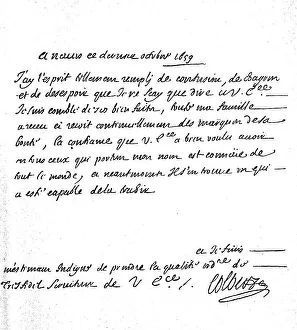 A neuers ce dernier octobre 1659
J'ay l'esprit tellement remply de confusion, de
et de desespoir que Je ne scay que dire a V. Ece
Je suis comblé de ses bien faits, toute ma famille
a receu et reçoit continuellement des marques de sa
bonté, la confiance que V. Ece a bien voulu auoir
en tous ceux qui portent mon nom est connüe de
tout le monde, et neantmoins Il s'en trouue un qui
a esté capable de la trahir
et Je suis
m'estimant Indigne de prendre la qualité de
Tres de V. Ece
Colbert